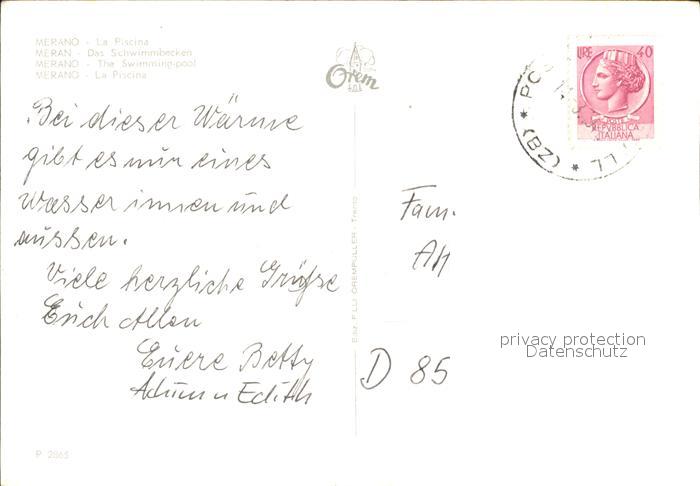 MERANO - La Piscina
MERAN - Das Schwimmbecken
MERANO - The Swimming-pool
MERANO - La Piscina
Orem
LIRE 40
POSTE
REPVBBLICA
ITALIANA
(BZ)
Bei dieser Wärme
gibt es nur eines
wasser innen und
aussen.
Viele herzliche Grüsse
Euch allen
Euere Betty
Edith
Ediz. F.LLI OREMPULLER - Trento
Fam.
D 85
privacy protection
Datenschutz
P 2865